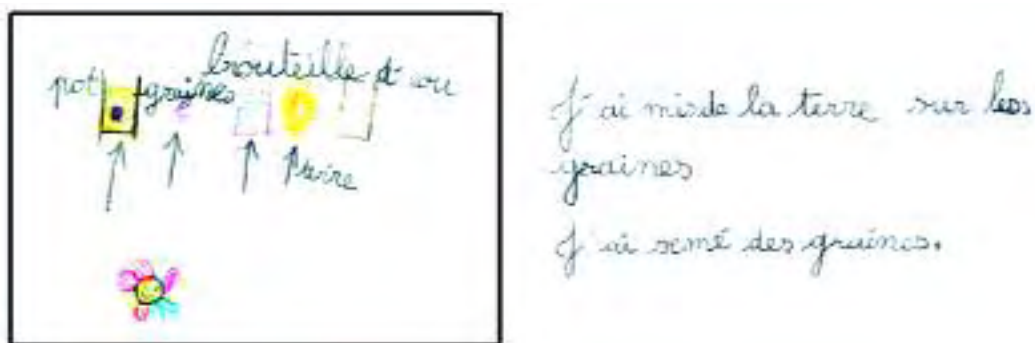 pot graines brouteille d'ou
terre
J'ai mis de la terre sur les
graines
J'ai semé des graines.